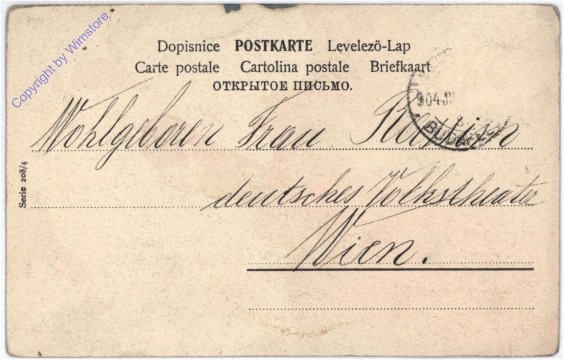 Copyright by Wimstore
Dopisnice POSTKARTE Levelező-Lap
Carte postale Cartolina postale Briefkaart
ОТКРЫТОЕ ПИСЬМО.
904
BUDAPEST
Wohlgeboren Frau
deutsches Volkstheater
Wien.
Serie 208/4